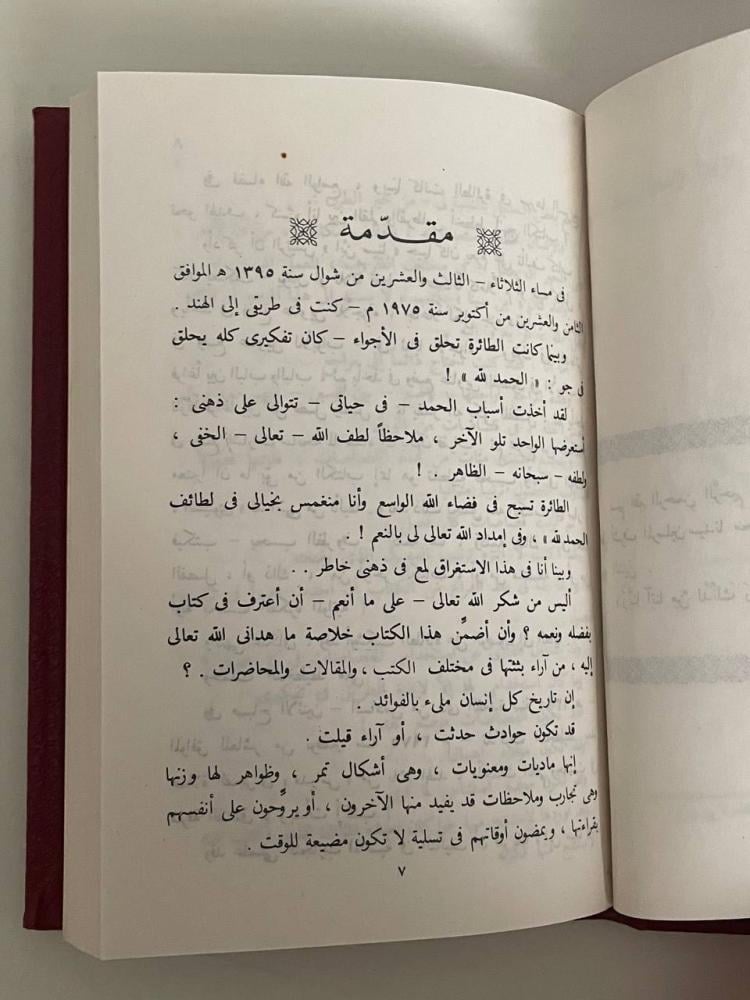 مقدّمة
فى مساء الثلاثاء – الثالث والعشرين من شوال سنة ١٣٩٥ ه الموافق
الثامن والعشرين من أكتوبر سنة ١٩٧٥ م – كنت فى طريقى إلى الهند .
وبينما كانت الطائرة تحلق فى الأجواء – كان تفكيرى كله يحلق
فى جو : « الحمد لله » !
لقد أخذت أسباب الحمد – فى حياتى – تتوالى على ذهنى :
أستعرضها الواحد تلو الآخر ، ملاحظاً لطف الله – تعالى – الخفى ،
ولطفه – سبحانه – الظاهر . !
الطائرة تسبح فى فضاء الله الواسع وأنا منغمس بخيالى فى لطائف
الحمد لله » ، وفى إمداد الله تعالى لى بالنعم ! .
وبينا أنا فى هذا الاستغراق لمع فى ذهنى خاطر . .
أليس من شكر الله تعالى – على ما أنعم – أن أعترف فى كتاب
بفضله ونعمه ؟ وأن أضمِّن هذا الكتاب خلاصة ما هدانى الله تعالى
إليه ، من آراء بثثتها فى مختلف الكتب ، والمقالات والمحاضرات . ؟
إن تاريخ كل إنسان ملىء بالفوائد .
قد تكون حوادث حدثت ، أو آراء قيلت .
إنها ماديات ومعنويات ، وهى أشكال تمر ، وظواهر لها وزنها
وهى تجارب وملاحظات قد يفيد منها الآخرون ، أو يروِّحون على أنفسهم
بقراءتها ، ويمضون أوقاتهم فى تسلية لا تكون مضيعة للوقت .
٧